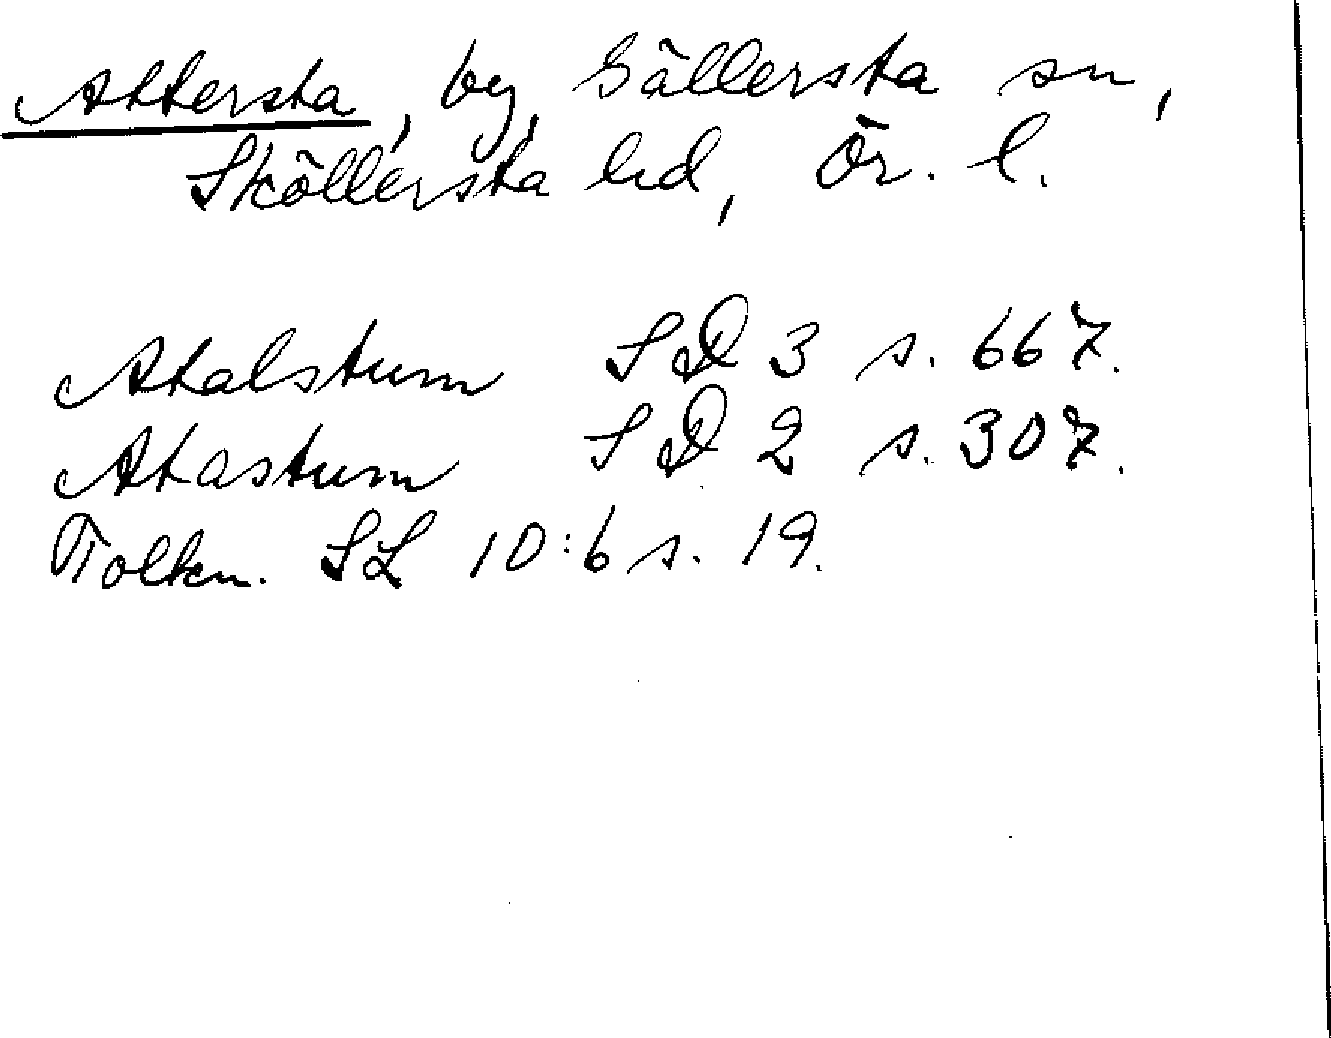 Attersta, by, Gällersta sn,
Sköllersta hd, Ör. l.
Atalstum SD 3 s. 667.
Atastum SD 2 s. 307.
Tolkn. SL 10:6 s. 19.